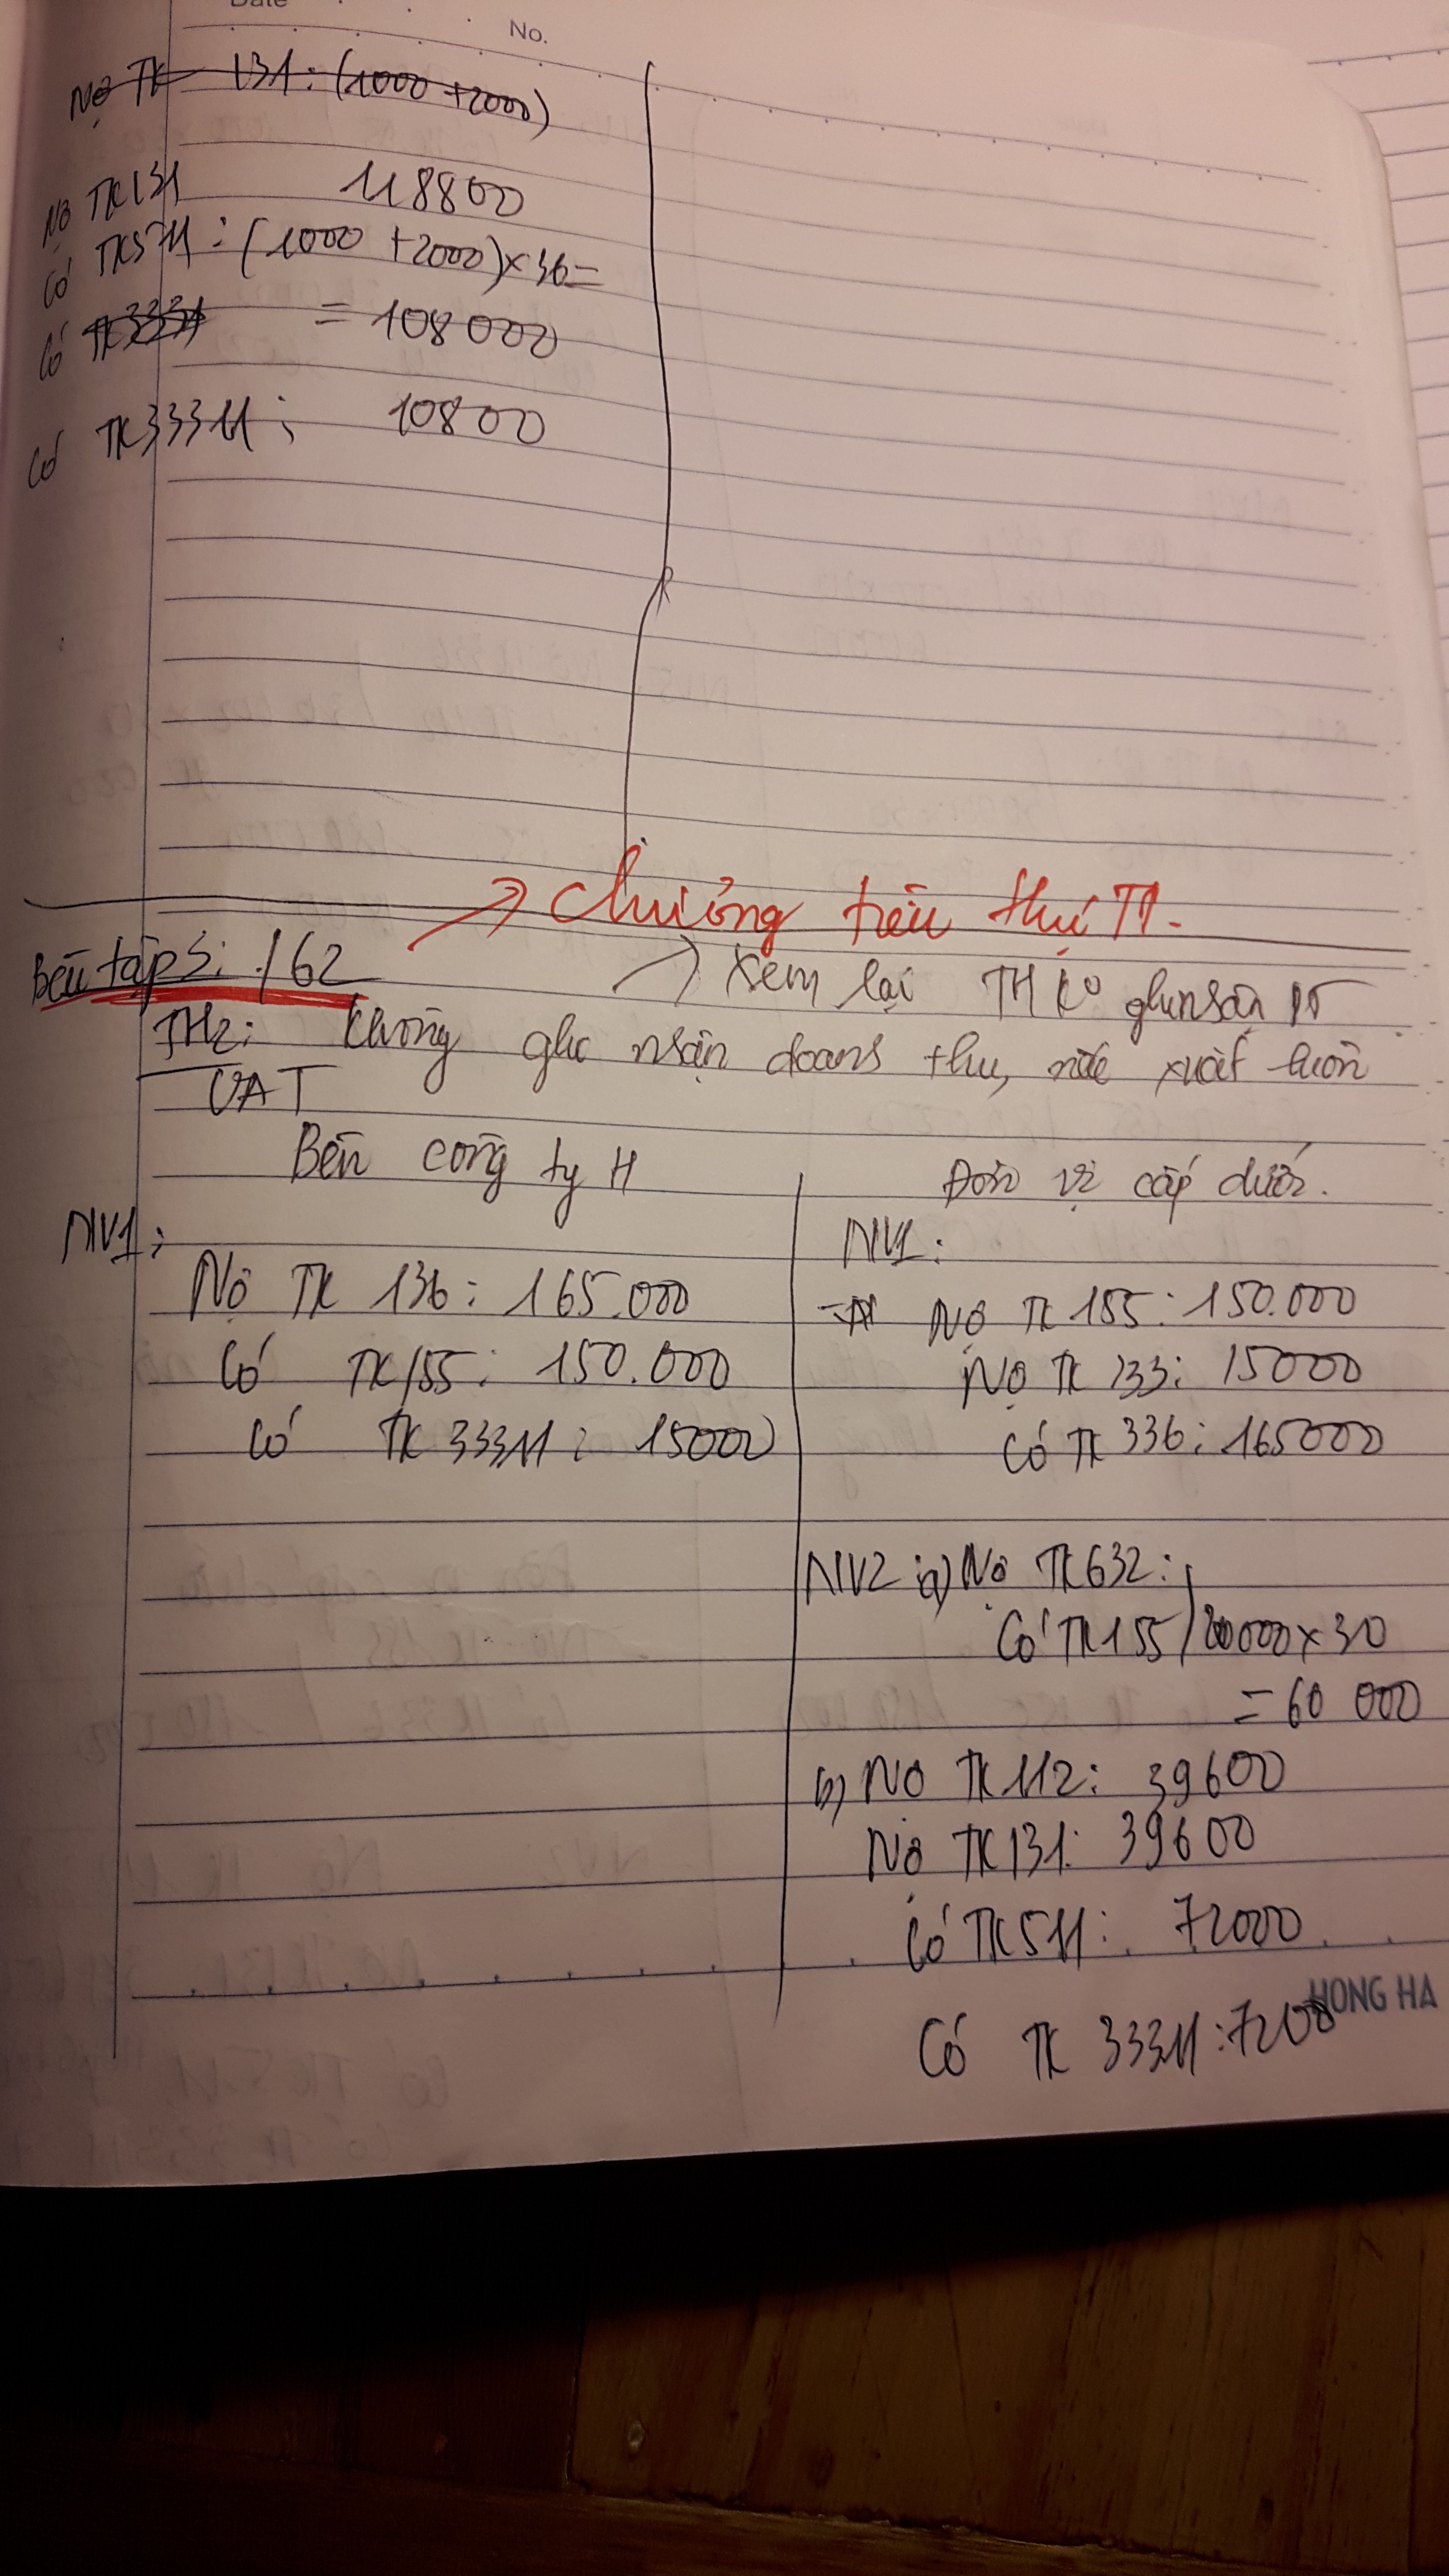 Date
No.
Nợ TK 131: (1000 + 2000)
Nợ TK131 118800
Có TK511: (1000 + 2000) x 36 =
Có TK3331 = 108000
Có TK 33311: 10800
→ Chương tiêu thụ TP.
Bài tập 5: /62
→ Xem lại TH ko ghi nhận DT
TH2: Không ghi nhận doanh thu, mà xuất luôn
VAT
Bên công ty H
Đơn vị cấp dưới.
NV1:
Nợ TK 136: 165.000
Có TK155: 150.000
Có TK 33311: 15000
NV1:
Nợ TK 155: 150.000
Nợ TK 133: 15000
Có TK 336: 165000
NV2: a) Nợ TK632:
Có TK155 / 2000 x 30
= 60 000
b) Nợ TK112: 39600
Nợ TK131: 39600
Có TK511: 72000
HONG HA
Có TK 33311: 7200